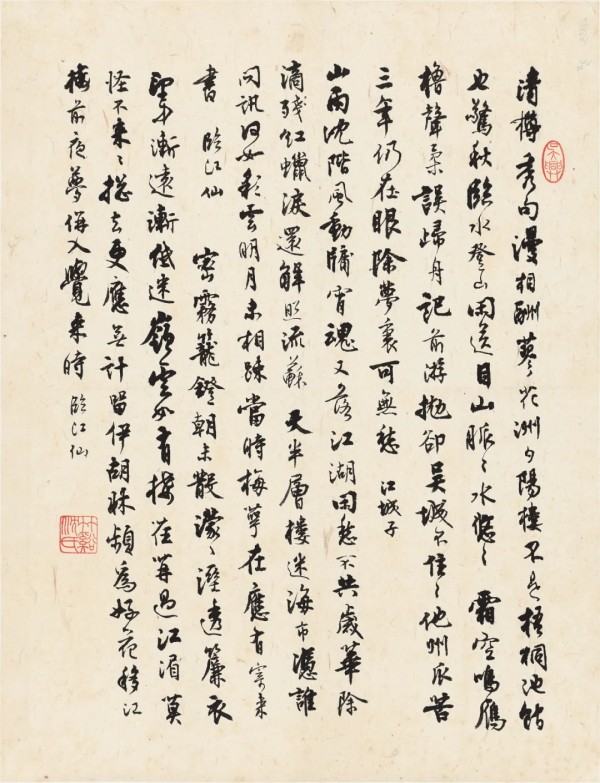 清樽秀句漫相酬蓼花洲夕陽樓不是梧桐池館
也驚秋臨水登山閑送目山脈々水悠々 霜空鳴雁
櫓聲柔誤歸舟記前游拋卻吳城不住々他州最苦
三年仍在眼除夢裏可無愁 江城子
山雨沈階風動牖宵魂又落江湖閑愁不共歲華除
滴殘紅蠟淚還解照流蘇 天半層樓迷海市憑誰
問訊何如彩雲明月未相疎當時梅萼在應有寄來
書 臨江仙 密霧籠鐙朝未散濛々溼透簾衣
望中漸遠漸低迷嶺雲如有接荏苒過江湄 莫
怪不來々揔去更應無計留伊胡牀頻為好花移江
梅前夜夢併入覺來時 臨江仙
吳興
竹谿沈氏